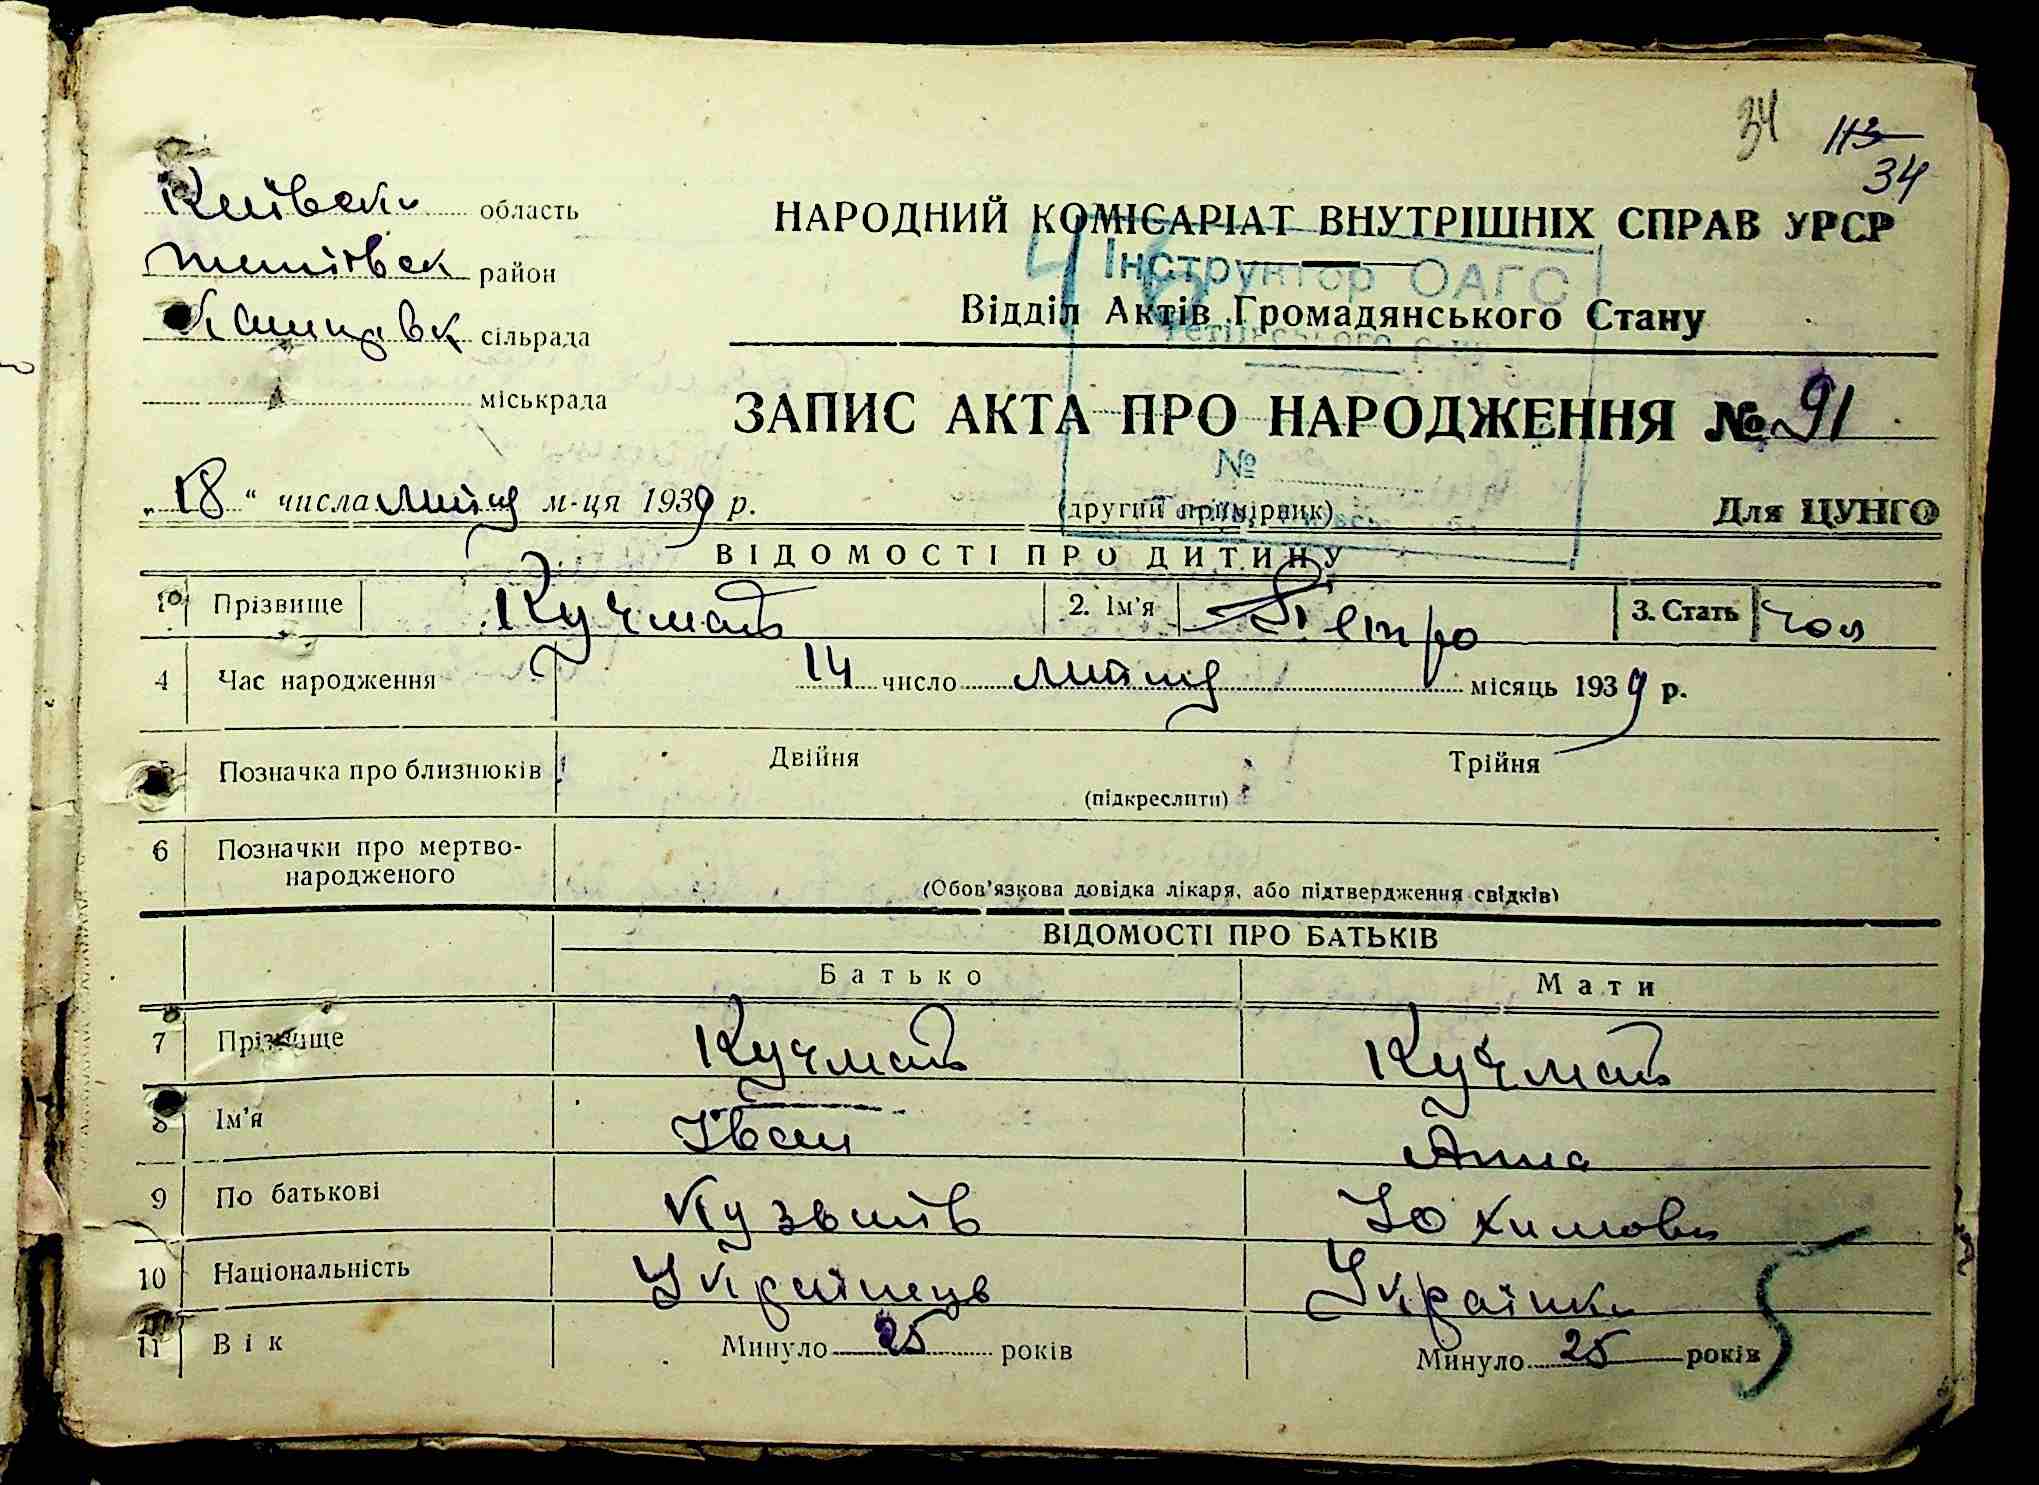 34
113
34
Київськ область
Тетіївськ район
сільрада
міськрада
НАРОДНИЙ КОМІСАРІАТ ВНУТРІШНІХ СПРАВ УРСР
46
Інструктор ОАГС
Відділ Актів Громадянського Стану
ЗАПИС АКТА ПРО НАРОДЖЕННЯ № 91
№
„18“ числа лютня м-ця 1939 р.
(другий примірник)
Для ЦУНГО
ВІДОМОСТІ ПРО ДИТИНУ
1 Прізвище Кучмай 2. Ім'я Петро 3. Стать чол
4 Час народження 14 число лютня місяць 1939 р.
Позначка про близнюків Двійня Трійня
(підкреслити)
6 Позначки про мертво-
народженого
(Обов'язкова довідка лікаря, або підтвердження свідків)
ВІДОМОСТІ ПРО БАТЬКІВ
Батько Мати
7 Прізвище Кучмай Кучмай
8 Ім'я Іван Анна
9 По батькові Кузьмів Юхимовн
10 Національність Українець Українка
11 Вік Минуло 25 років Минуло 25 років
5